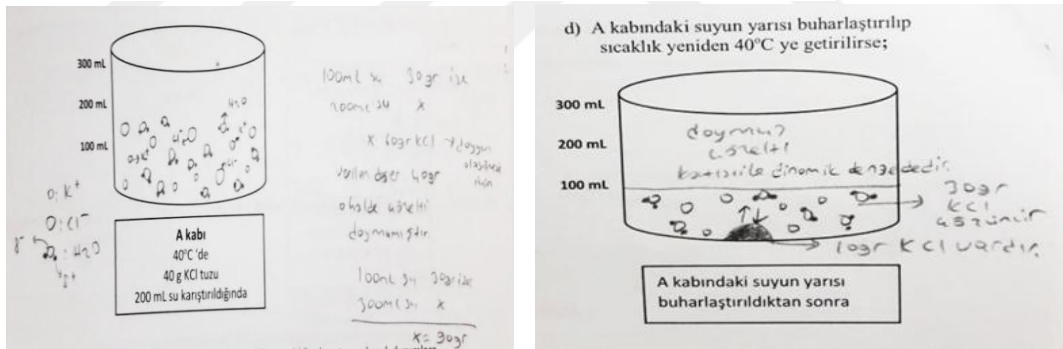 300 mL
200 mL
100 mL
H2O
O: K+
O: Cl-
: H2O
A kabı
40°C 'de
40 g KCl tuzu
200 mL su karıştırıldığında
100mL su 30gr ise
200mL su x
x 60gr KCl
verilen değer 40gr
o halde çözelti
doymamıştır.
100mL su 30gr ise
x = 30gr
d) A kabındaki suyun yarısı buharlaştırılıp
sıcaklık yeniden 40°C ye getirilirse;
300 mL
200 mL
100 mL
doymuş
çözelti
katısı ile dinamik dengededir.
30gr
KCl
çözünür
10gr KCl vardır.
A kabındaki suyun yarısı
buharlaştırıldıktan sonra